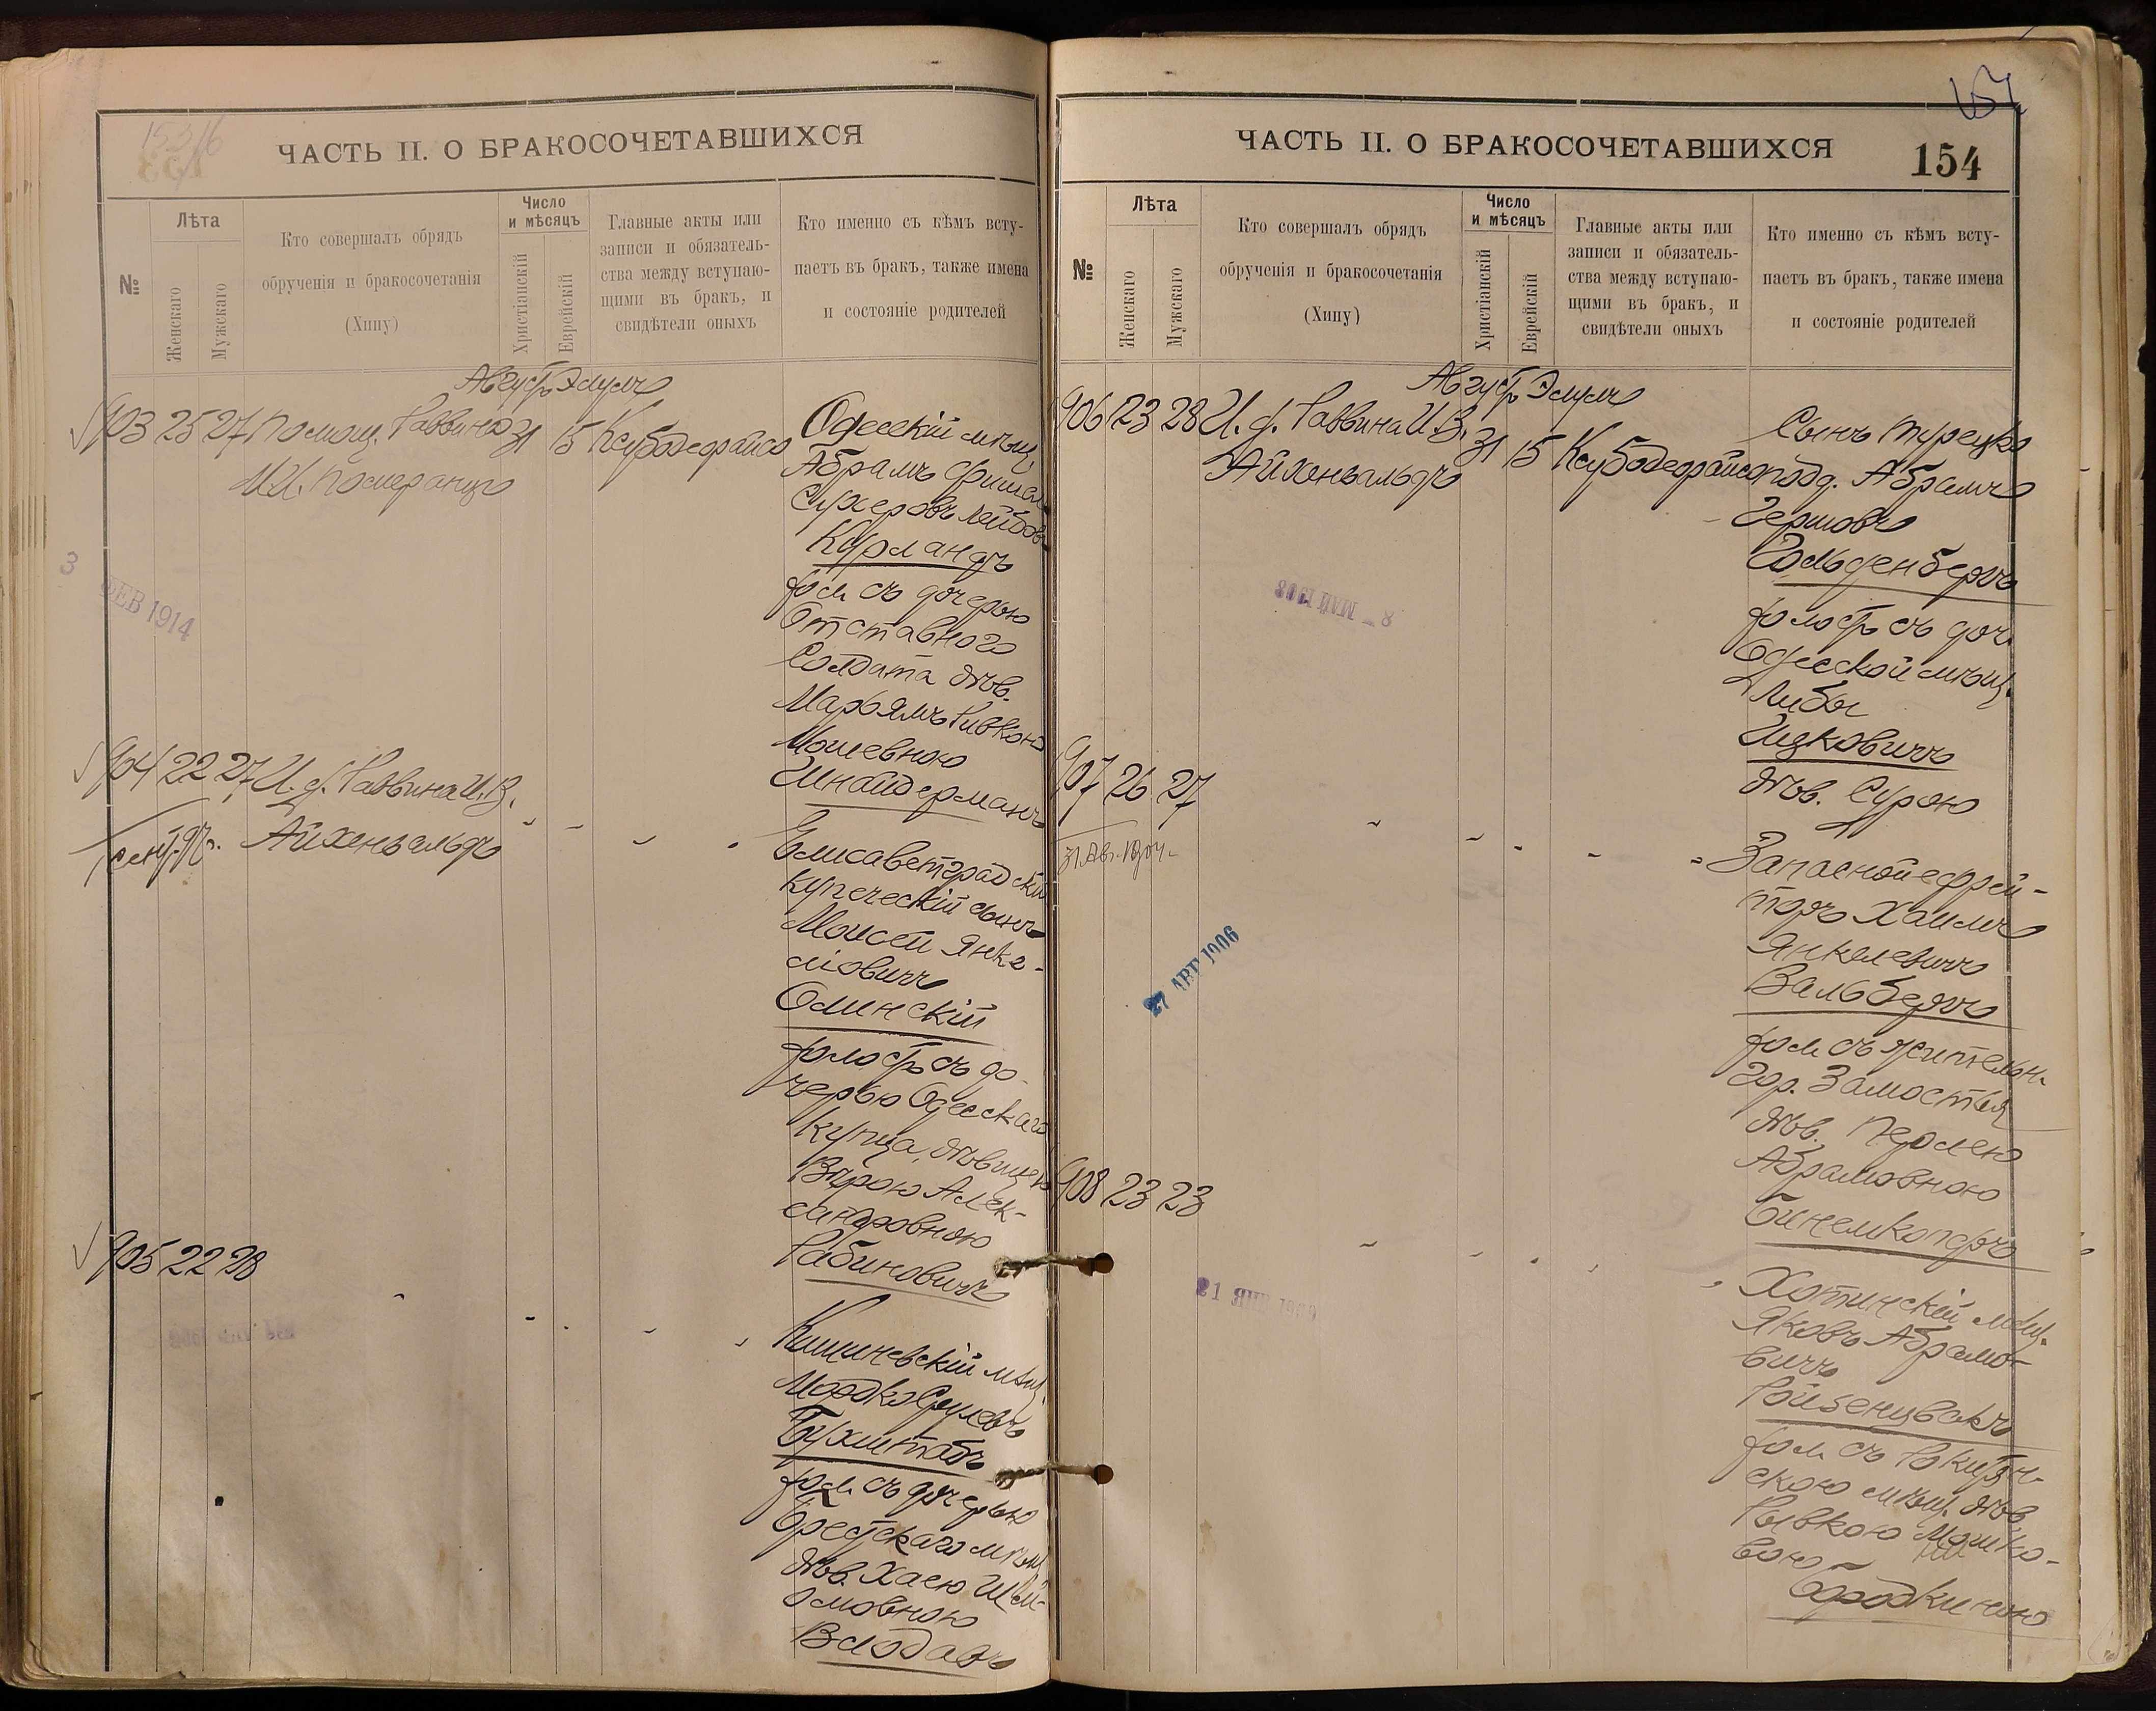 ЧАСТЬ II. О БРАКОСОЧЕТАВШИХСЯ
№
Лѣта
Женскаго
Мужскаго
Кто совершалъ обрядъ
обрученія и бракосочетанія
(Хипу)
Число
и мѣсяцъ
Христіанскій
Еврейскій
Главные акты или
записи и обязатель-
ства между вступаю-
щими въ бракъ, и
свидѣтели оныхъ
Кто именно съ кѣмъ всту-
паетъ въ бракъ, также имена
и состояніе родителей
903 25 27 Помощ. Раввина 31 15
И. Померанцъ
Одесскій мѣщ.
Абрамъ
Курландъ
хол. съ дочерью
Отставного
Солдата дѣв.
Марьямъ Ривкою
Мошевною
Шнайдерманъ
3 ФЕВ 1914
904 22 27 И. д. Раввина И. В.
Айхенвальдъ
Елисаветградскій
купеческій сынъ
Моисей Янке-
ліовичъ
Олинскій
холостъ съ до-
черью Одесскаго
купца, дѣвицею
Вѣрою Алек-
сандровною
Рабиновичъ
905 22 28
Кишиневскій мѣщ.
Мордко Срулевъ
Бухштабъ
хол. съ дочерью
Брестскаго мѣщ.
дѣв. Хаею Шлі-
омовною
Влодавъ
ЧАСТЬ II. О БРАКОСОЧЕТАВШИХСЯ
154
№
Лѣта
Женскаго
Мужскаго
Кто совершалъ обрядъ
обрученія и бракосочетанія
(Хипу)
Число
и мѣсяцъ
Христіанскій
Еврейскій
Главные акты или
записи и обязатель-
ства между вступаю-
щими въ бракъ, и
свидѣтели оныхъ
Кто именно съ кѣмъ всту-
паетъ въ бракъ, также имена
и состояніе родителей
906 23 28 И. д. Раввина И. В. 31 15
Айхенвальдъ
Сынъ турецко
подд. Абрамъ
Гершовъ
Гольденбергъ
холостъ съ доч.
Одесской мѣщ.
Либы
Ицковичъ
дѣв. Сурою
8 - МАЙ 1908
907 26 27
27 АВГ 1906
Запасной ефрей-
торъ Хаимъ
Янкелевичъ
Вальбергъ
хол. съ жительн.
гор. Замостья
дѣв. Перлею
Абрамовною
Бинемкопфъ
908 23 23
Хотинскій мѣщ.
Яковъ Абрамо-
вичъ
Ройзенцвакъ
хол. съ Рокитян-
скою мѣщ. дѣв.
Рывкою Мошко-
вою
Бродкиною